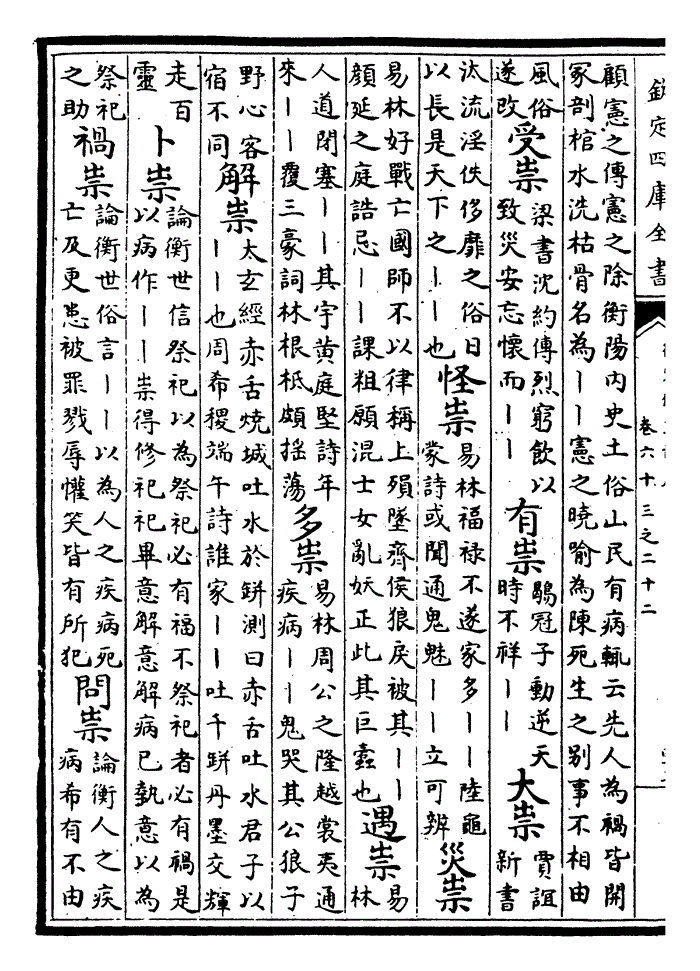 欽定四庫全書
卷六十三之二十二
顧憲之傳憲之除衡陽内史土俗山民有病輒云先人為禍皆開
冢剖棺水洗枯骨名為丨丨憲之曉喻為陳死生之别事不相由
風俗
遂改
受祟
梁書沈約傳烈窮飲以
致災安忘懷而丨丨
有祟
鶡冠子動逆天
時不祥丨丨
大祟
賈誼
新書
汰流淫佚侈靡之俗日
以長是天下之丨丨也
怪祟
易林福禄不遂家多丨丨陸龜
蒙詩或聞通鬼魅丨丨立可辨
災祟
易林好戰亡國師不以律稱上殞墜齊侯狼戾被其丨丨
顔延之庭誥忌丨丨課粗願混士女亂妖正此其巨蠹也
遇祟
易
林
人道閉塞丨丨其宇黄庭堅詩年
來丨丨覆三豪詞林根柢頗揺蕩
多祟
易林周公之隆越裳夷通
疾病丨丨鬼哭其公狼子
野心客
宿不同
解祟
太玄經赤舌燒城吐水於缾測曰赤舌吐水君子以
丨丨也周希稷端午詩誰家丨丨吐千缾丹墨交輝
走百
靈
卜祟
論衡世信祭祀以為祭祀必有福不祭祀者必有禍是
以病作丨丨祟得修祀祀畢意解意解病已執意以為
祭祀
之助
禍祟
論衡世俗言丨丨以為人之疾病死
亡及更患被罪戮辱懽笑皆有所犯
問祟
論衡人之疾
病希有不由